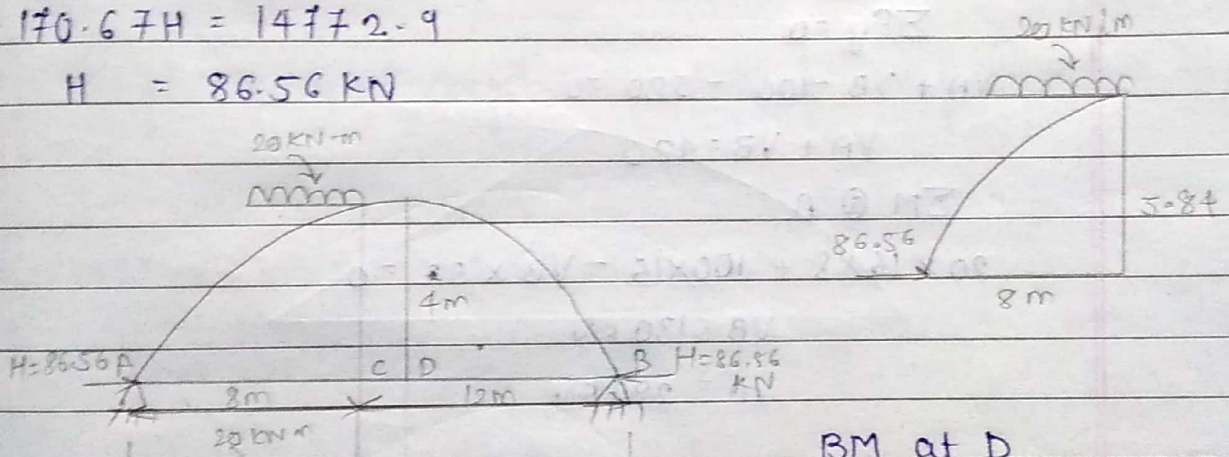 170.67H = 14772.9
H = 86.56 KN
20 KN/m
20 KN-m
5.84
86.56
4m
8 m
H=86.56 A
C D
B H=86.56
KN
8m
12m
BM at D